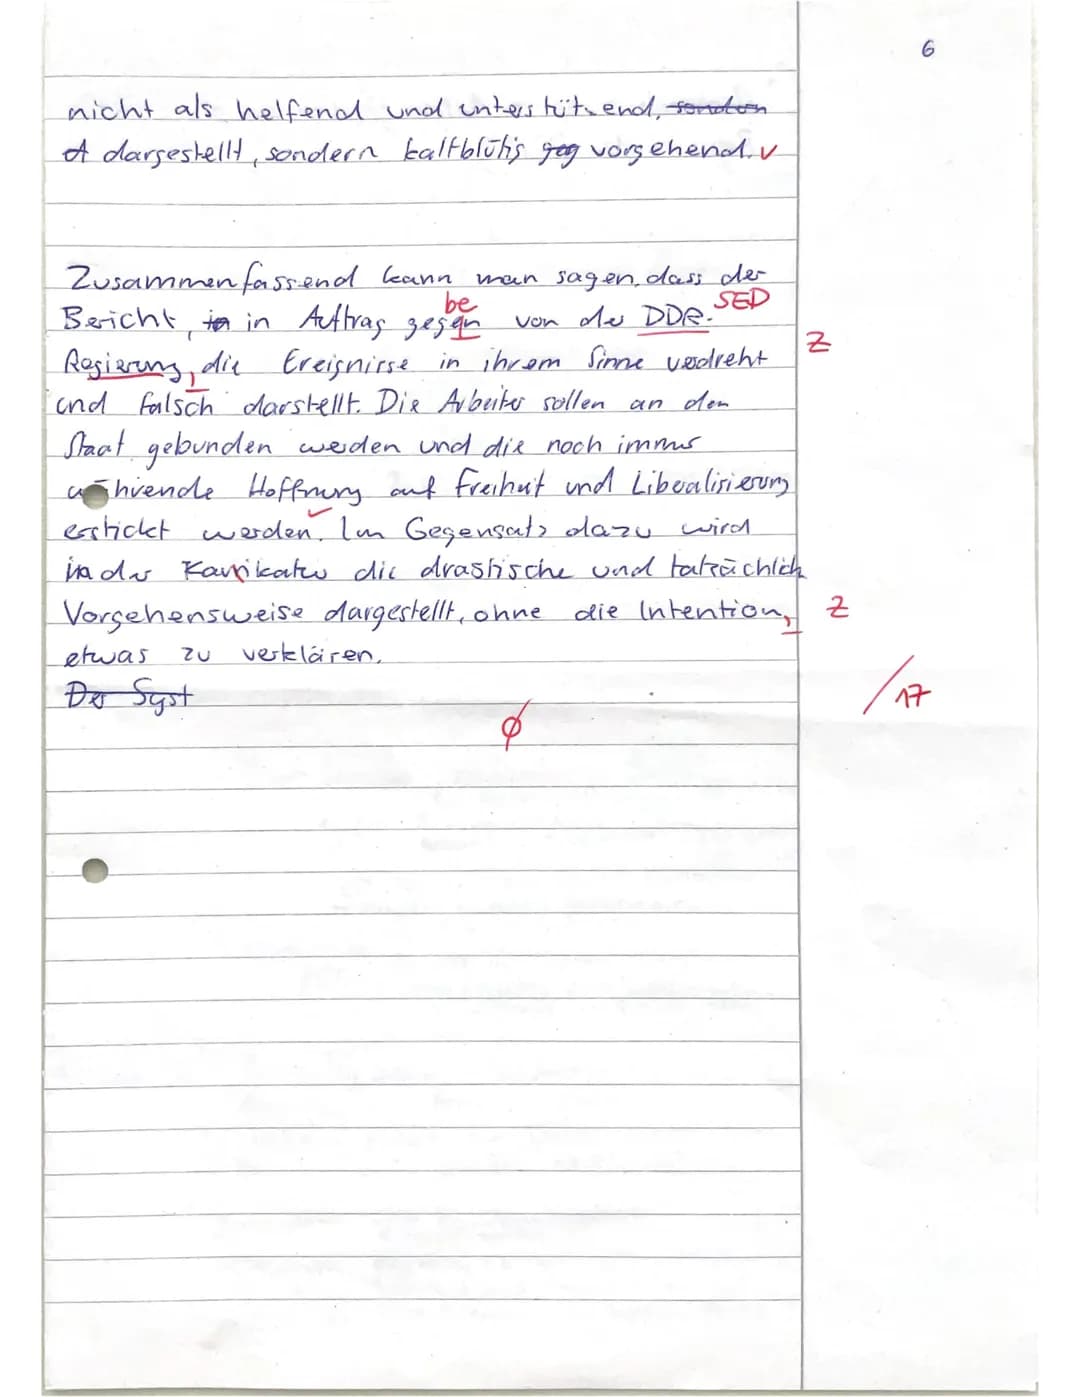 6
nicht als helfend und unterstützend, sondern
A dargestellt, sondern kaltblütig geg vorgehend. v
Zusammenfassend kann man sagen, dass der
be
SED
Bericht, in in Auftrag gegeben von der DDR-
Regierung, die Ereignisse in ihrem Sinne verdreht
Z
und falsch darstellt. Die Arbeiter sollen an den
Staat gebunden werden und die noch immer
währende Hoffnung auf Freiheit und Liberalisierung
erstickt werden. Im Gegensatz dazu wird
in der Karrikatur die drastische und tatsächlich
Vorgehensweise dargestellt, ohne die Intention,
Z
etwas zu verklären.
Der Syst
/17
ϕ